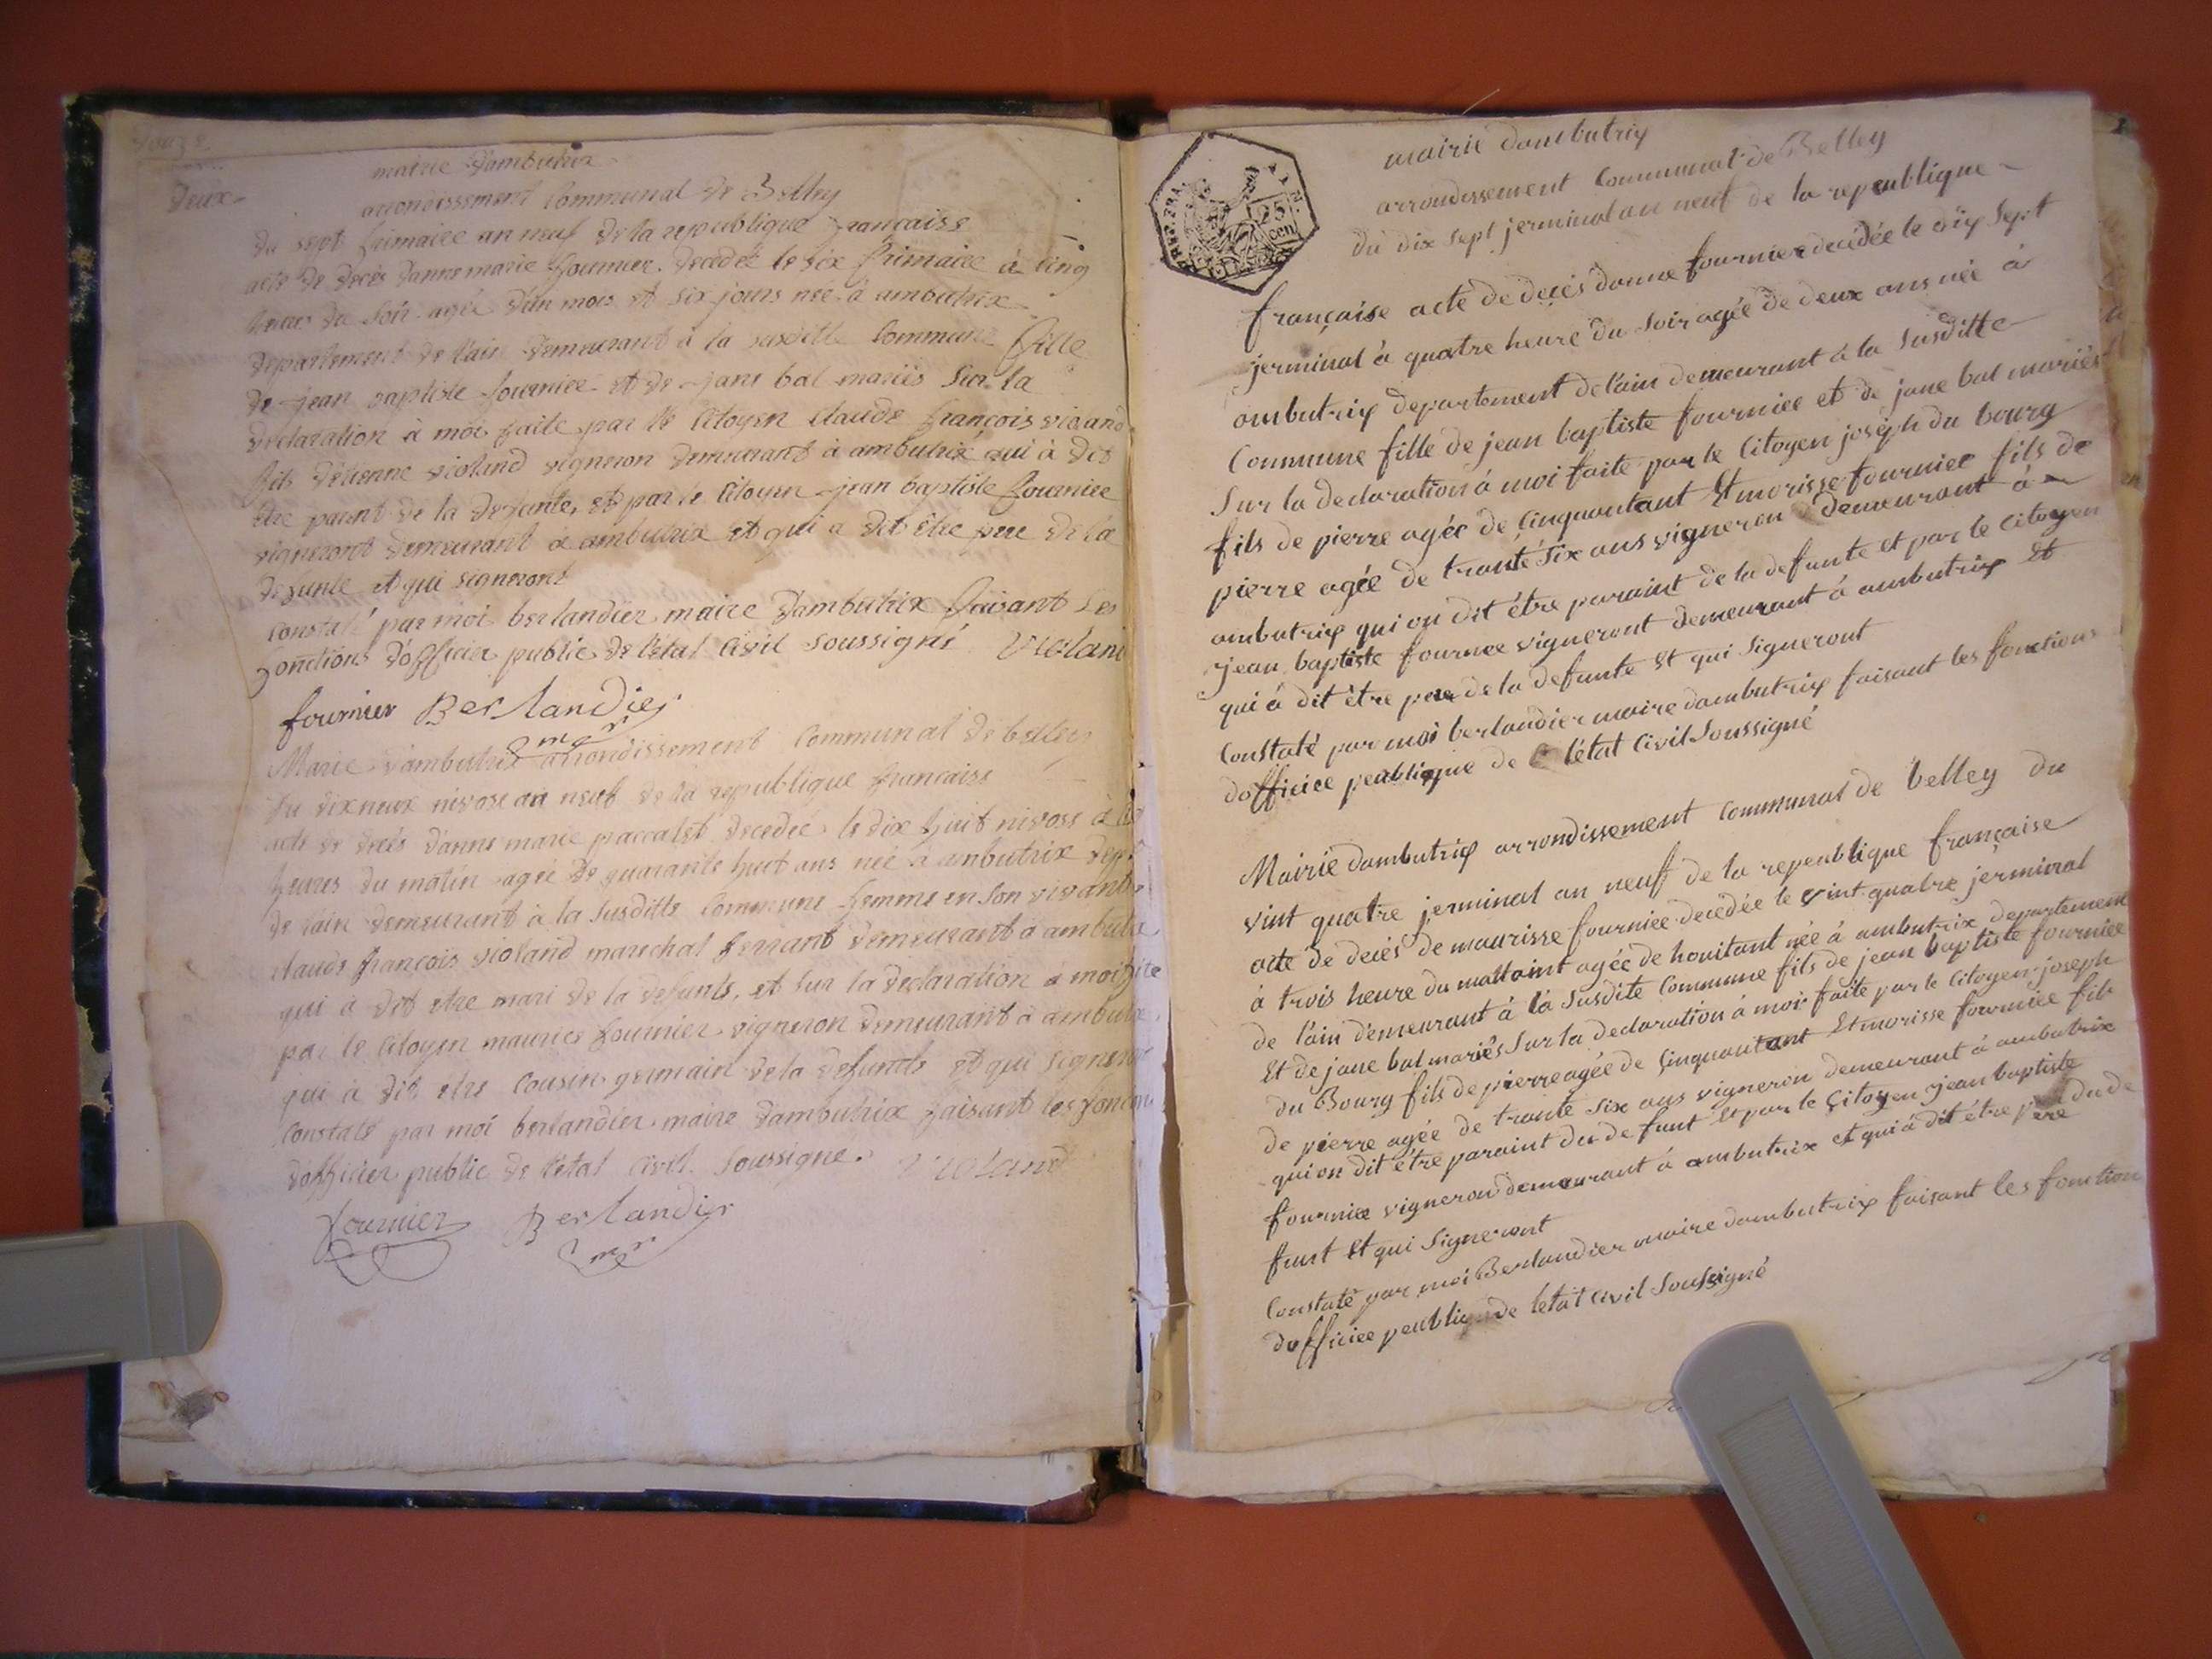 Deux
mairie d'ambutrix
arrondissement Communal de Belley
du sept frimaire an neuf de la republique française
acte de decès d'anne marie fournier. decedée le six frimaire à cinq
heures du soir agée d'un mois et six jours née à ambutrix
departement de l'ain demeurant à la susditte Commune fille
de jean baptiste fournier et de jane bal mariés sur la
declaration à moi faite par le Citoyen claude françois violand
fils d'etienne violand vigneron demeurant à ambutrix qui à dit
être parent de la defunte, et par le Citoyen jean baptiste fournier
vigneront demeurant à ambutrix et qui a dit être pere de la
defunte et qui signeront
Constaté par moi berlandier maire d'ambutrix faisant les
fonctions d'officier public de l'état Civil soussigné Violand
fournier Berlandier
mer
Marie d'ambutrix arrondissement Communal de belley
du dixneuf nivose an neuf de la republique française
acte de decès d'anne marie paccalet decedée le dix huit nivose à
heures du matin agée de quarante huit ans née à ambutrix dep
de l'ain demeurant à la susditte Commune femme en son vivant
claude françois violand marechal ferrant demeurant à ambutrix
qui à dit etre mari de la defunte, et sur la declaration a moi fite
par le Citoyen maurice fournier vigneron demeurant à ambutrix
qui à dit etre Cousin germain de la defunte et qui signeront
Constaté par moi berlandier maire d'ambutrix faisant les fonction
d'officier public de l'état Civil soussigné. Violand
fournier Berlandier
mer
25
cen
mairie dambutrix
arrondissement Communal de Belley
du dix sept jerminal an neuf de la republique
française acte de decès donne fournier decédée le dix sept
jerminal à quatre heure du soir agée de deux ans née à
ambutrix departement de l'ain demeurant à la susditte
Commune fille de jean baptiste fournier et de jane bal mariés
Sur la declaration à moi faite par le Citoyen joseph du bourg
fils de pierre agée de Cinquantant Et morisse fournier fils de
pierre agée de trante six ans vigneron demeurant à
ambutrix qui on dit être paraint de la defunte et par le citoyen
jean baptiste fournee vigneront demeurant à ambutrix et
qui à dit être pere de la defunte et qui Signeront
Constaté par moi berlandier maire dambutrix faisant les fonction
dofficiee peublique de l'état Civil Soussigné
Mairie dambutrix arrondissement Communal de belley du
vint quatre jerminal an neuf de la republique française
acte de decés de maurisse fourniee decedée le vint quatre jerminal
à trois heure du mattaint agée de houitant née à ambutrix departement
de l'ain demeurant à la susdite Commune fils de jean baptiste fourniee
Et de jane bal mariés Sur la declaration à moi faite par le Citoyen joseph
du Bourg fils de pierre agée de Cinquantant Et morisse fourniee fils
de pierre agée de trante six ans vigneron demeurant à ambutrix
qui on dit être paraint du defunt Et par le Citoyen jean baptiste
fourniee vigneron demeurant à ambutrix et qui à dit être pere du de
funt et qui Signeront
Constaté par moi Berlandier maire dambutrix faisant les fonction
dofficiee peublique de letat Civil Soussigné